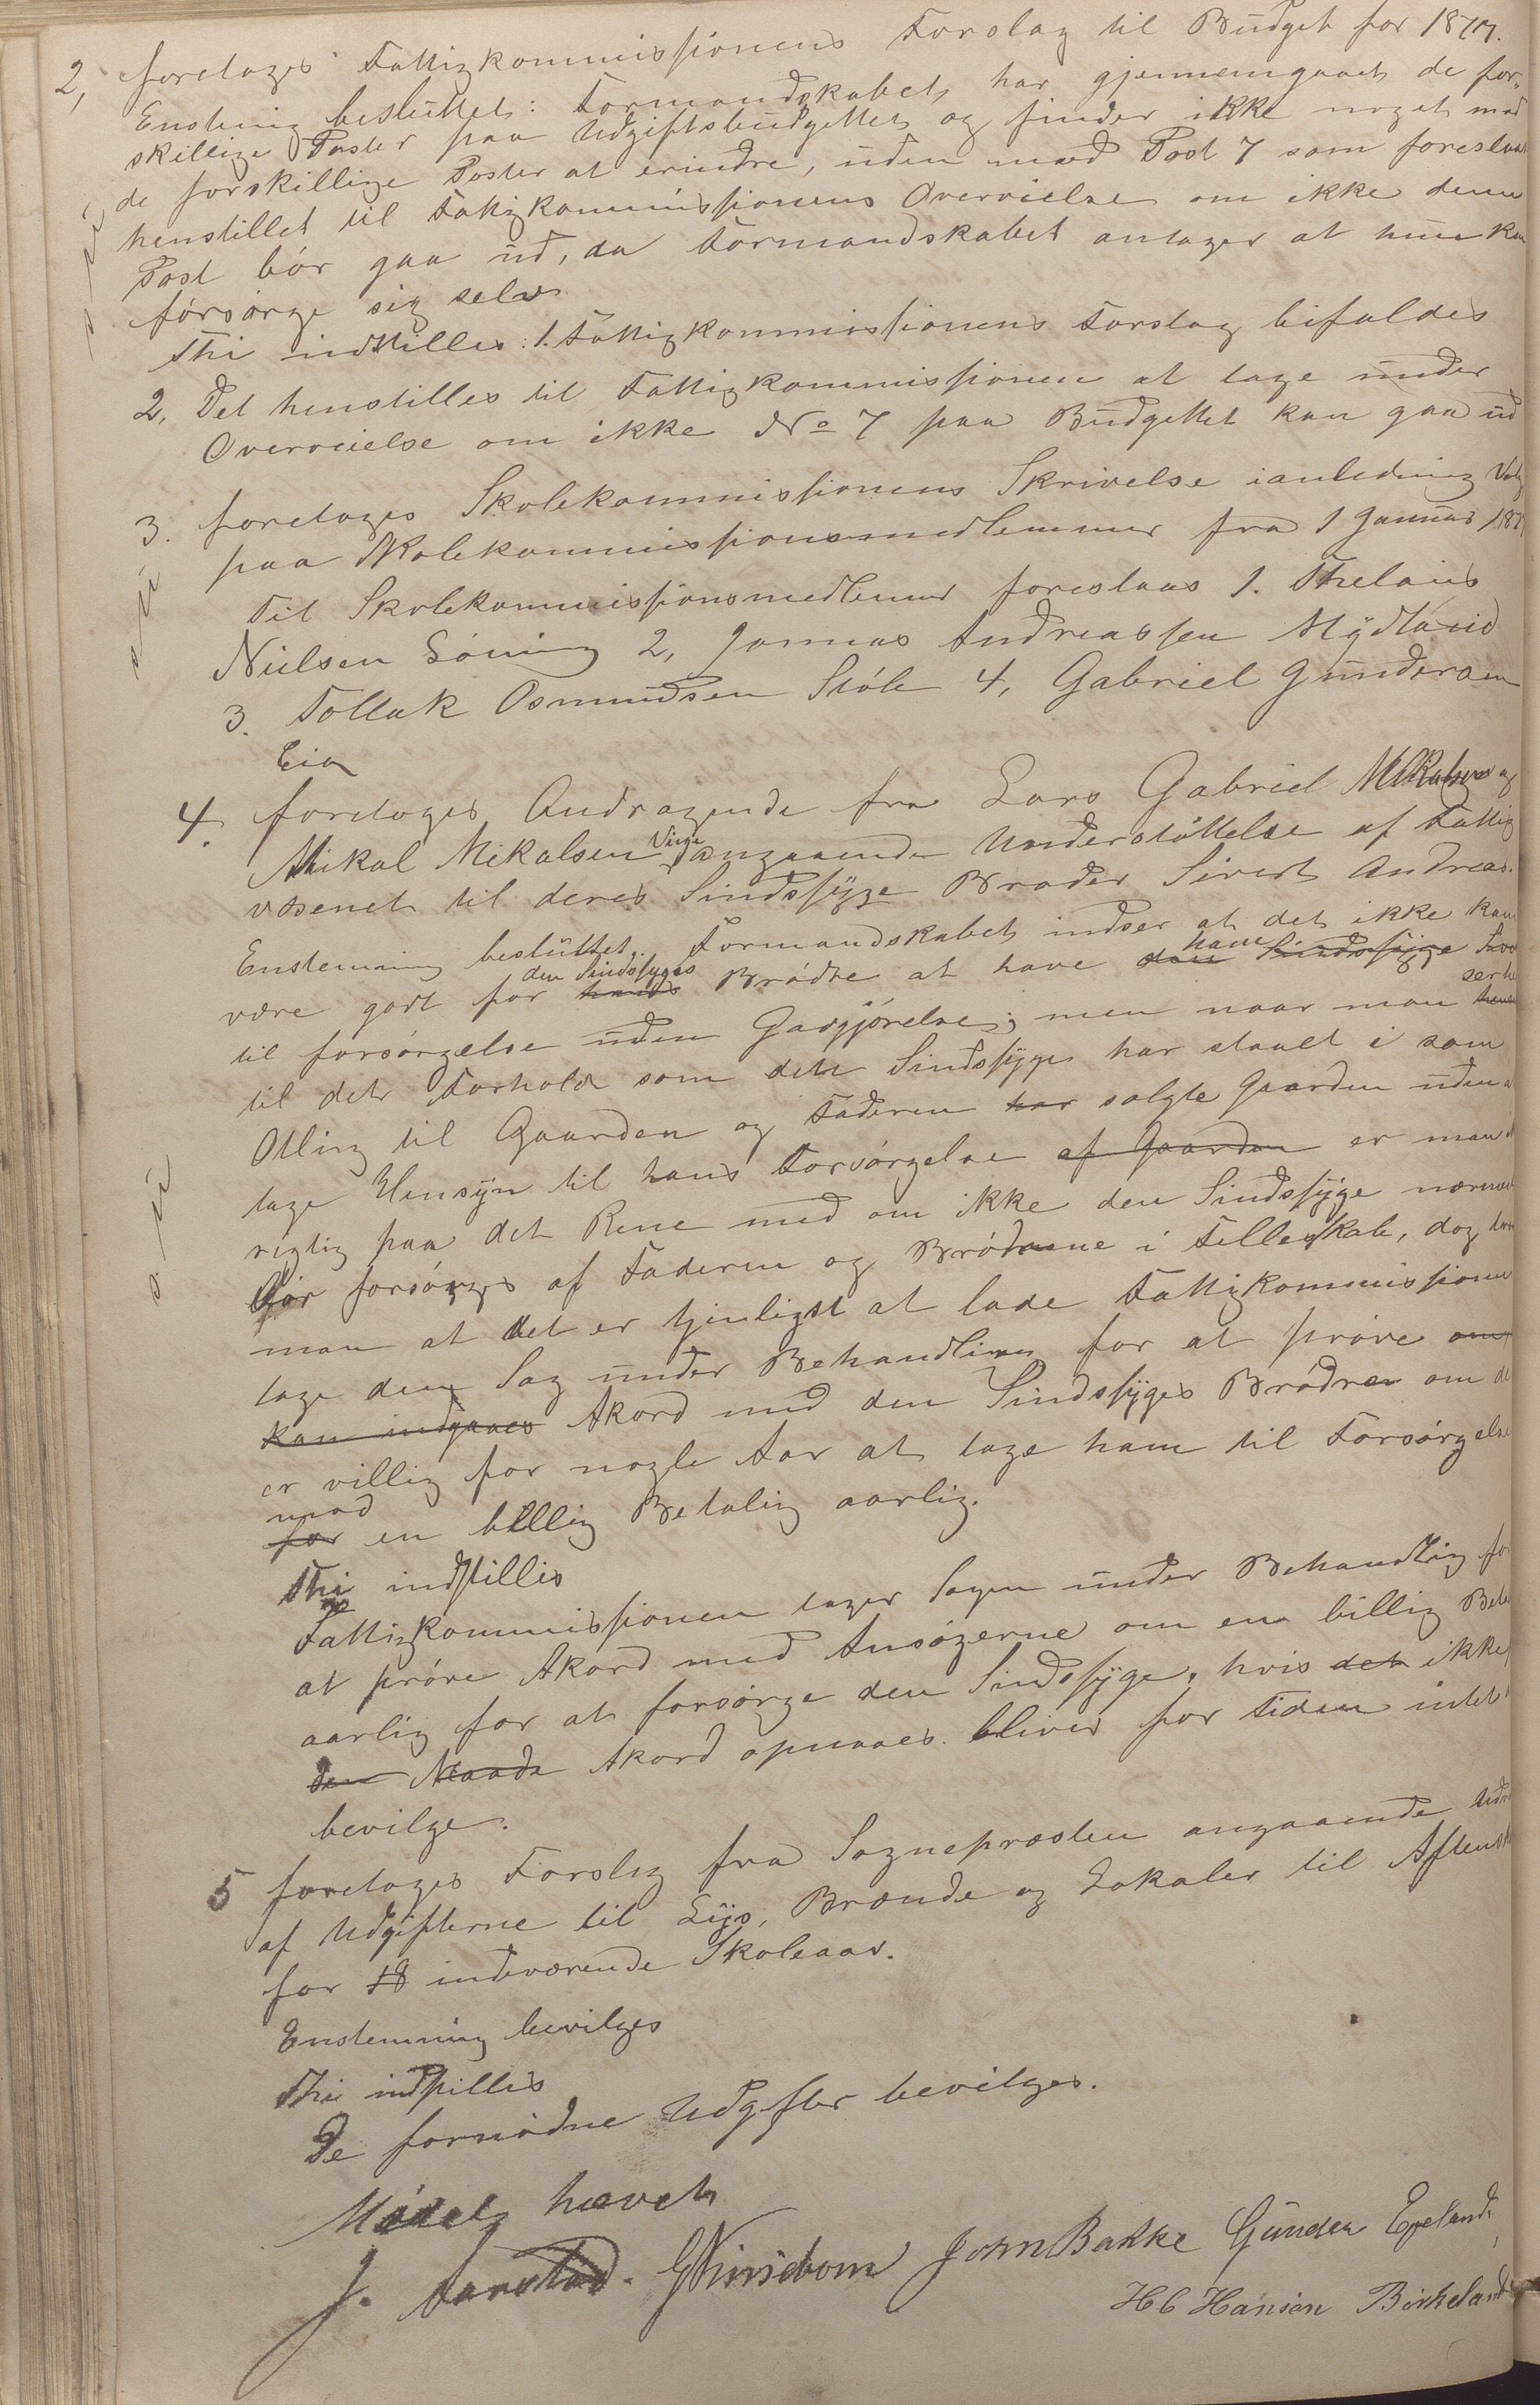 2, foretoges Fattigkommissionens Forslag til Budget for 1877.
Enstemig besluttet: Formandskabet har gjennemgaaet de for-
skillige Poster paa Udgiftsbudgettet og finder ikke noget mod
de forskillige Poster at erindre, uden mod Post 7 som foreslaaes
henstillet til Fattigkommissionens Overveielse om ikke denne
Post bör gaa ud, da Formandskabet antager at hun kan
försörge sig selv.
Thi indstilles: 1. Fattigkommissionens Forslag bifaldes
2, Det henstilles til Fattigkommissionen at tage under
Overveielse om ikke No 7 paa Budgettet kan gaa ud
3. foretoges Skolekommissionens Skrivelse ianledning Valg
paa Skolekommissionsmedlemmer fra 1 Januar 187
Til Skolekommissionsmedlemmer foreslaas 1. Thelaus
Nielsen Löning 2, Jonnas Andreassen Mydland
3. Tollak Osmundsen Stöle 4, Gabriel Gundersen
Eia
4. foretoges Andragende fra Lars Gabriel Mikalsen og
Mikal Mikalsen Vinje angaaende Understöttelse af Fattig
væsenet til deres Sindssyge Broder Sivert Andreas.
Enstemmig besluttet. Formandskabet indser at det ikke kan
være godt for hands den Sindssyges Brödre at have den Sindssyge ham
til forsörgelse uden Godgjörelse; men naar man ser hen
til det Forhold som den Sindssyge har staaet i som
Otling til Gaarden og Faderen har solgte Gaarden uden at
tage Hensyn til hans Forsörgelse af Gaarden er man i
rigtig paa det Rene med om ikke den Sindssyge nærmest
bör forsörges af Faderen og Brödrene i Fellesskab, dog tror
man at det er tjenligst at lade Fattigkommissionen
tage den Sag under Behandling for at pröve om
kan indgaaes Akord med den Sindssyges Brödre om de
er villig for nogle Aar at tage ham til Forsörgelse
mod
for en billig Betaling aarlig.
Thi indstilles
Fattigkommissionen tager Sagen under Behandling for
at pröve Akord med Ansögerne om en billig Beta
aarlig for at forsörge den Sindssyge, hvis det ikke
den Maade Akord opnaaes bliver for Tiden intet
bevilge.
5 foretoges Forslag fra Sognepræsten angaaende Udre
af Udgifterne til Lys, Brænde og Lokaler til Aftensk
for 18 indeværende Skoleaar.
Enstemmig bevilges
Thi indstilles
De fornödne Udgifter bevilges.
Mödet hævet
J. Aarstad. John Bakke Gunder Egeland.
H C Hansen Birkeland